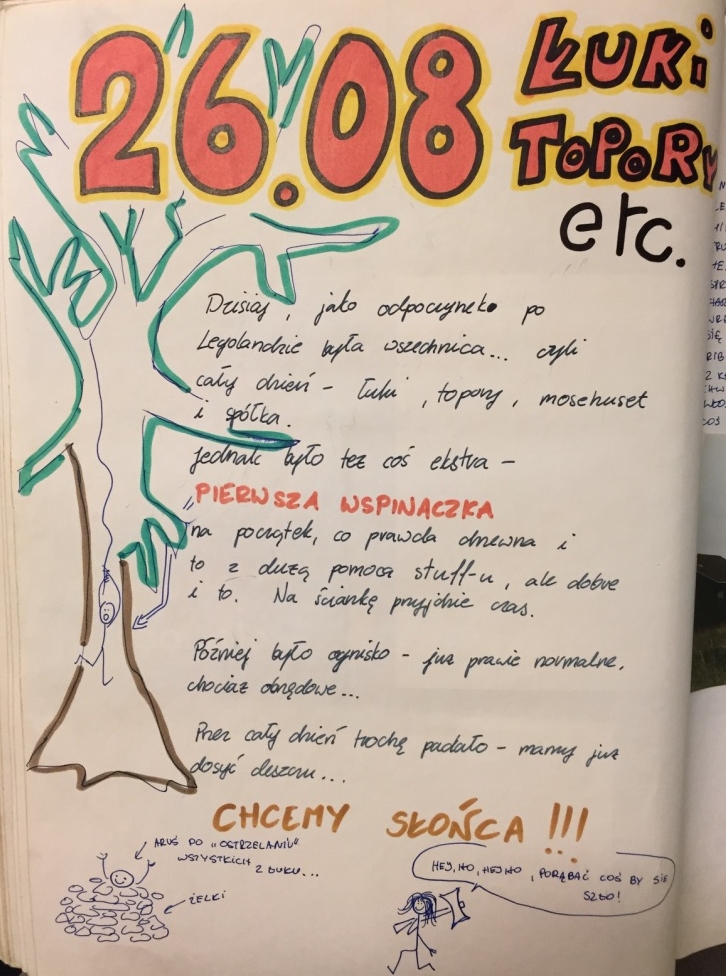 26.08
ŁUKi
TOPORY
etc.
Dzisiaj, jako odpoczynek po
Legolandzie była wszechnica... czyli
cały dzień - łuki, topory, mosehuset
i spółka.
Jednak było też coś ekstra -
PIERWSZA WSPINACZKA
na początek, co prawda drzewna i
to z dużą pomocą stuff-u, ale dobre
i to. Na ściankę przyjdzie czas.
Później było ognisko - już prawie normalne,
chociaż obrzędowe...
Przez cały dzień trochę padało - mamy już
dosyć deszczu...
CHCEMY SŁOŃCA !!!
ARUŚ PO "OSTRZELANIU"
WSZYSTKICH
Z ŁUKU...
ŻELKI
HEJ, HO, HEJ HO, PORĄBAĆ COŚ BY SIĘ
SZŁO!